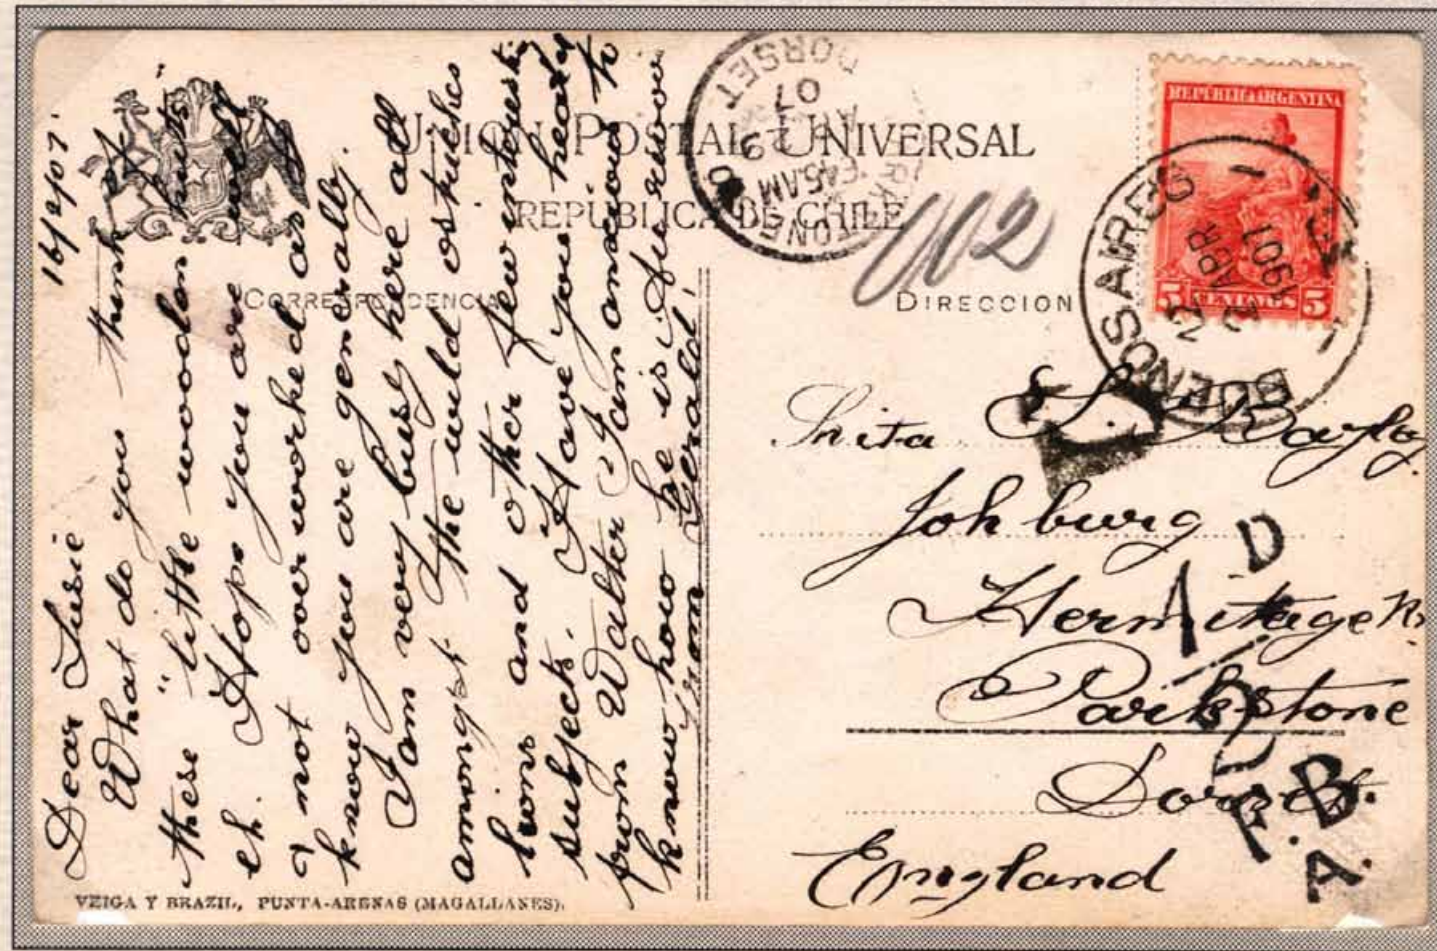 UNION POSTAL UNIVERSAL
REPÚBLICA DE CHILE
CORRESPONDENCIA
DIRECCION
16/2/07.
Dear Susie
What do you think of
these "little wooden huts"
eh. Hope you are well
& not over worked as
know you are generally.
I am very busy here all
amongst the wild ostriches
lions and other few interest.
subjects. Have you heard
from Walter I am anxious to
know how he is Aurevoir
from Gerald.
VEIGA Y BRAZIL, PUNTA-ARENAS (MAGALLANES).
REPUBLICA ARGENTINA
5 CENTAVOS 5
BUENOS AIRES
12 ABR
1907
PARKSTONE
AM
07
DORSET
S.
Joh burg
Hermitage R.
Parkstone
Dorset
England
F.B.
A.